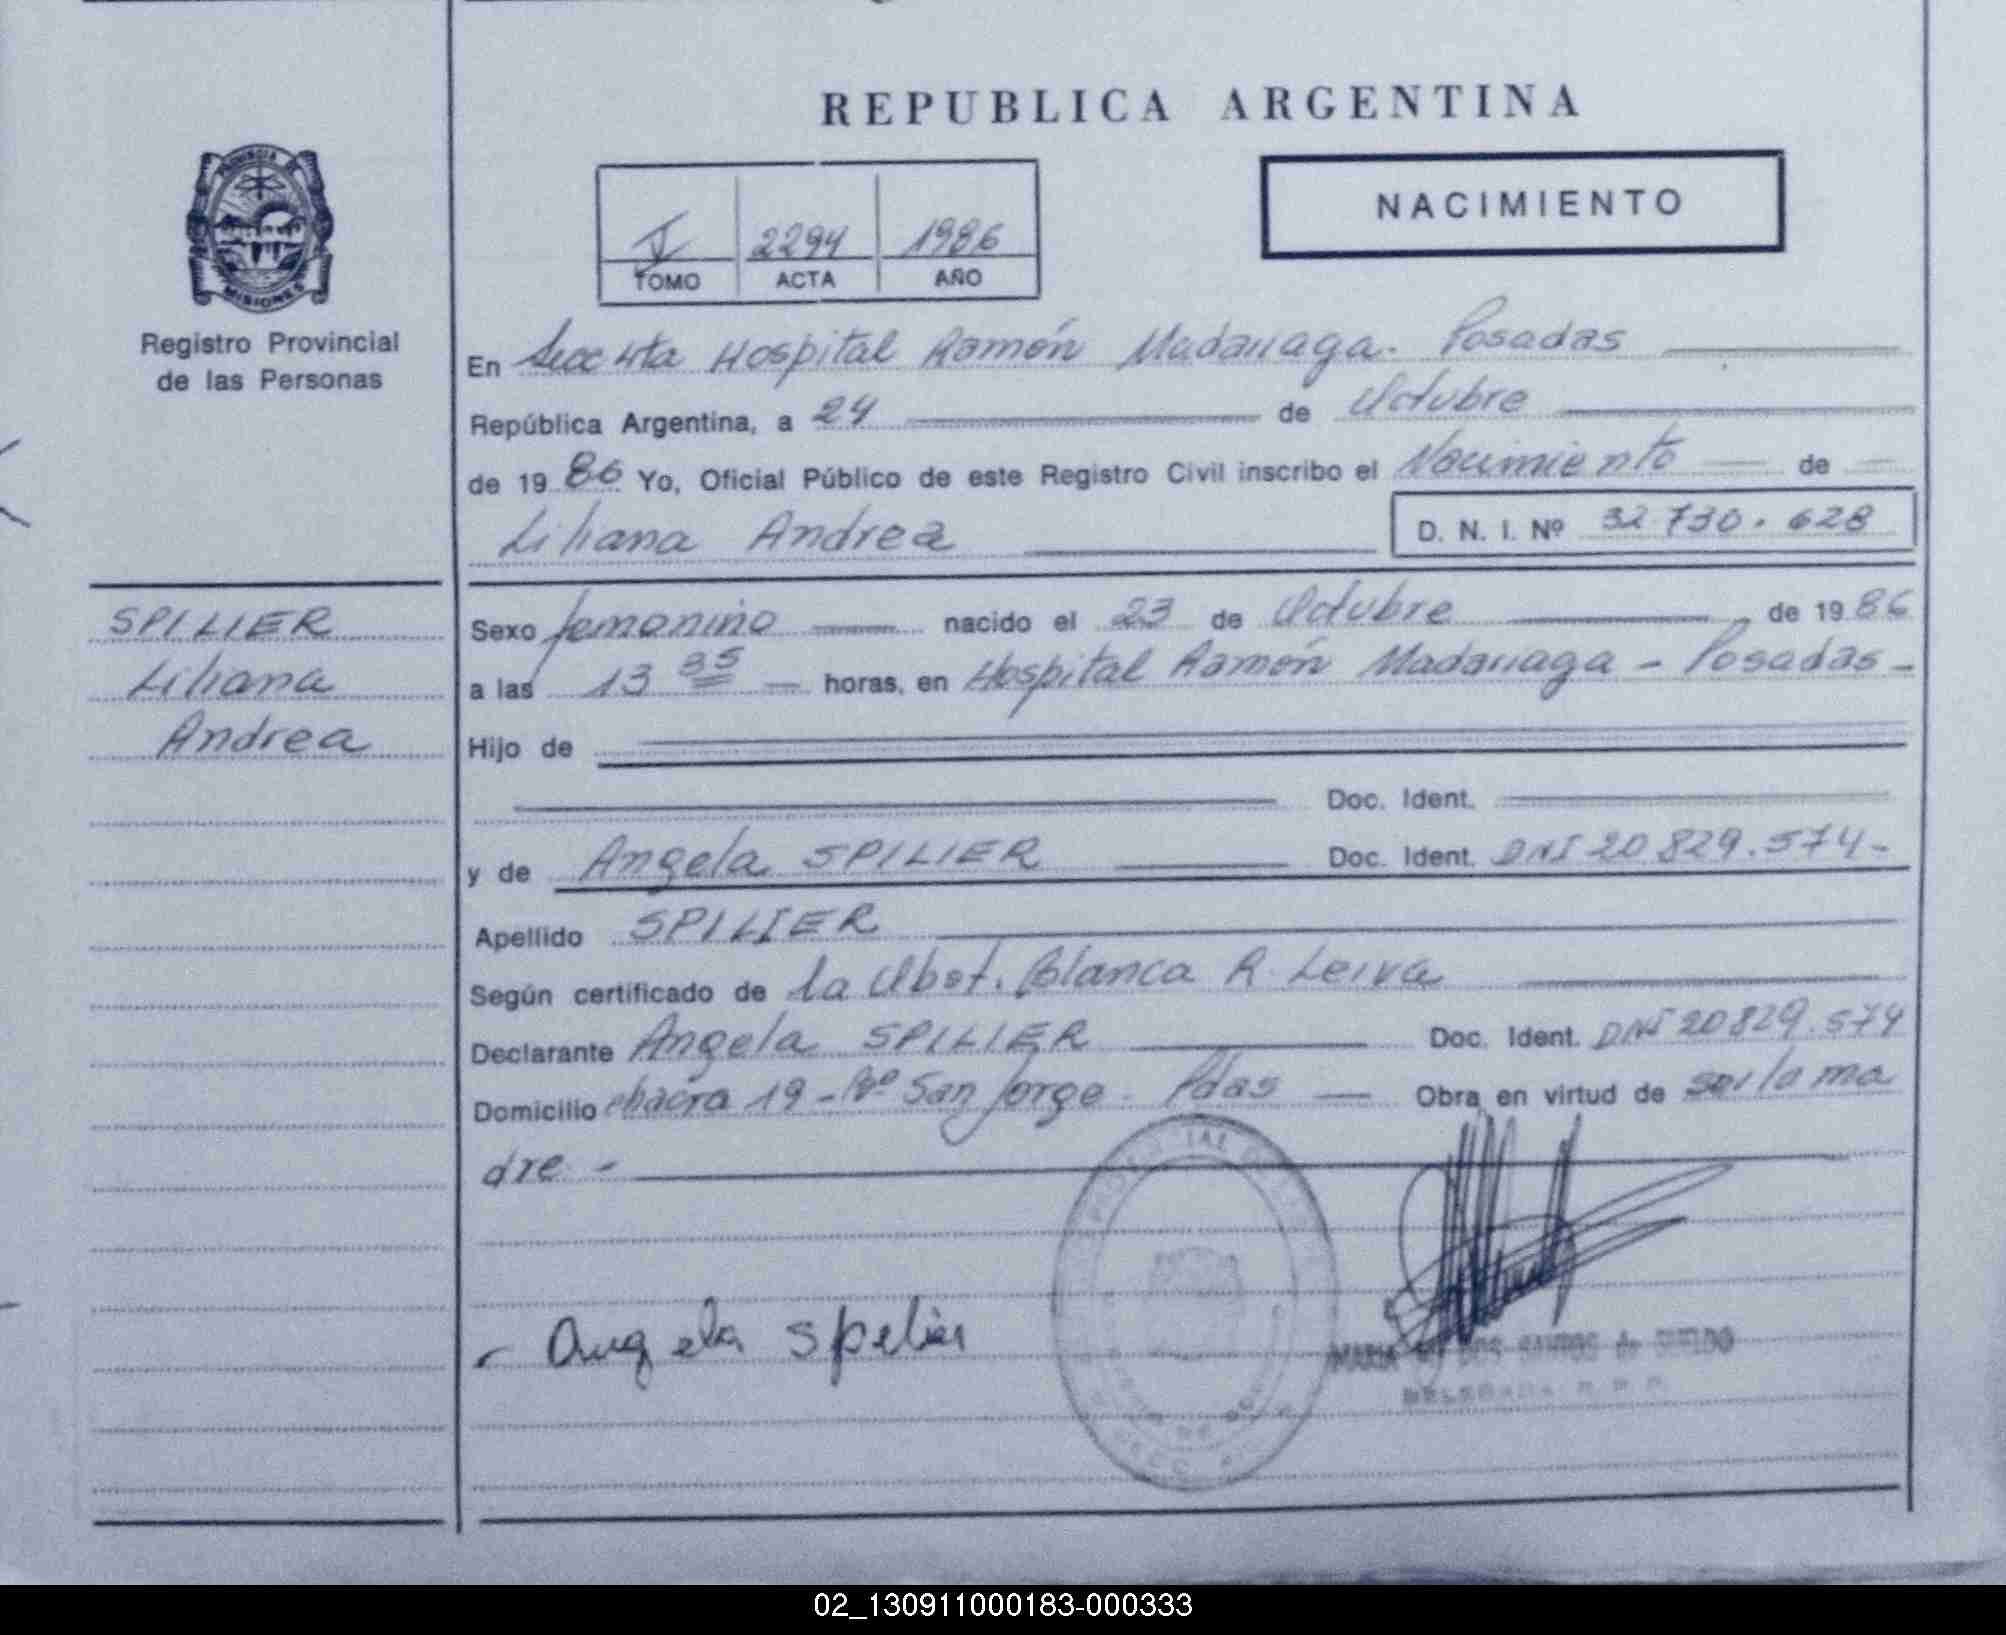 REPUBLICA ARGENTINA
NACIMIENTO
V 2294 1986
TOMO ACTA AÑO
PROVINCIA DE
MISIONES
Registro Provincial
de las Personas
En Secc 4ta Hospital Ramón Madariaga. Posadas
República Argentina, a 24 de Octubre
de 19 86 Yo, Oficial Público de este Registro Civil inscribo el Nacimiento de
Liliana Andrea D. N. I. Nº 32 730.628
SPILIER
Liliana
Andrea
Sexo femenino nacido el 23 de Octubre de 19 86
a las 13 35 horas, en Hospital Ramón Madariaga - Posadas -
Hijo de
Doc. Ident.
y de Angela SPILIER Doc. Ident. DNI 20 829.574-
Apellido SPILIER
Según certificado de la Obst. Blanca R. Leiva
Declarante Angela SPILIER Doc. Ident. DNI 20829.574
Domicilio chacra 19 - Bº San Jorge - Pdas Obra en virtud de ser la ma
dre -
- Angela spelier
MARIA DOS SANTOS de
DELEGADA R.P.P.
02_130911000183-000333